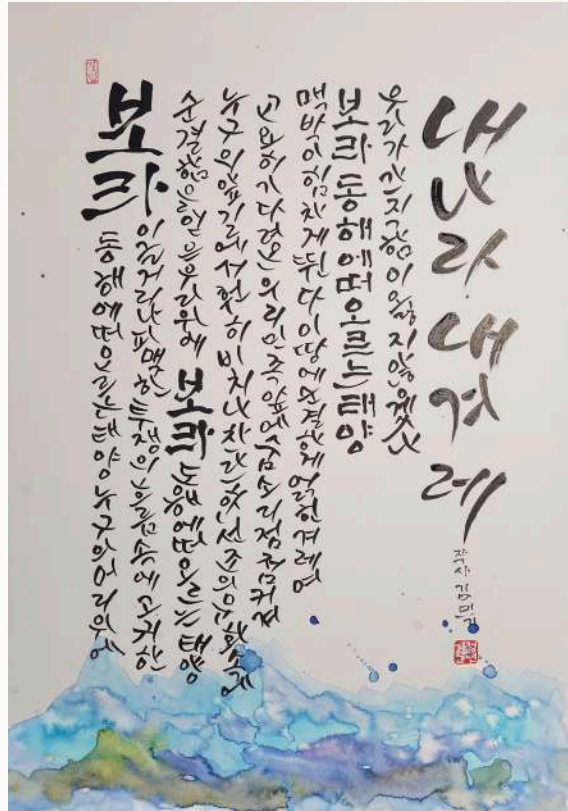 내 나라 내 겨레
작사 김민기
보라 동해에 떠오르는 태양 누구의 머리 위에
이글거리나 피맺힌 투쟁의 흐름 속에 고귀한
순결함을 얻은 우리 위에 보라 동해에 떠오르는 태양
누구의 앞길에서 훤히 비치나 찬란한 선조의 문화 속에
고요히 기다려온 우리 민족 앞에 숨소리 점점 커져
맥박이 힘차게 뛴다 이 땅에 순결하게 얽힌 겨레여
보라 동해에 떠오르는 태양
우리가 간직함이 옳지 않겠나